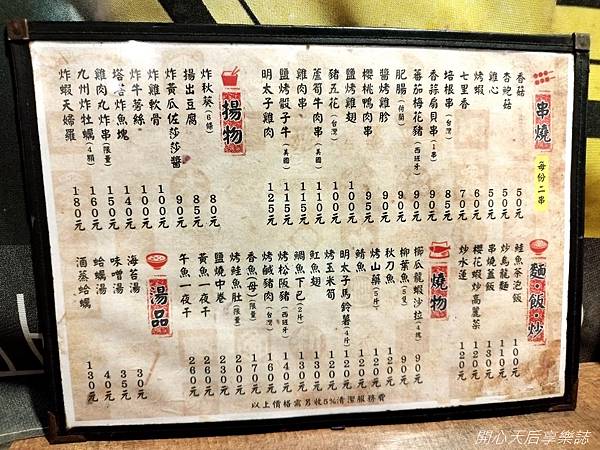 串燒
每份二串
香菇 50元
杏鮑菇 50元
雞心 50元
烤蝦 60元
七里香 70元
培根串(台灣) 85元
香蒜扇貝串(1串) 90元
蕃茄梅花豬(西班牙) 90元
肥腸(荷蘭) 90元
醬烤雞胗 90元
櫻桃鴨肉串 95元
鹽烤雞翅 100元
豬五花(台灣) 100元
蘆筍牛肉串(美國) 110元
雞肉串 115元
鹽烤骰子牛(美國) 115元
明太子雞肉 125元
揚物
炸秋葵(6條) 80元
揚出豆腐 85元
炸黃瓜佐莎莎醬 90元
炸雞軟骨 100元
炸牛蒡絲 100元
塔塔炸魚塊 140元
雞肉丸炸串(限量) 150元
九州炸牡蠣(4顆) 160元
炸蝦天婦羅 180元
麵·飯·炒
鮭魚茶泡飯 100元
炒烏龍麵 110元
串燒蓋飯 130元
櫻花蝦炒高麗菜 120元
炒水蓮 120元
燒物
櫛瓜龍蝦沙拉(4塊) 90元
柳葉魚(5隻) 90元
秋刀魚 120元
烤山藥(5片) 120元
鯖魚 120元
明太子馬鈴薯(4片) 120元
烤玉米筍 120元
魟魚翅 130元
鯛魚下巴(2片) 130元
烤松阪豬(西班牙) 140元
烤鹹豬肉(台灣) 160元
香魚(母)(限量) 170元
烤鮭魚肚(限量) 200元
鹽燒中卷 230元
黃魚一夜干 260元
午魚一夜干 260元
湯品
海苔湯 30元
味噌湯 35元
蛤蠣湯 40元
酒蒸蛤蠣 130元
以上價格需另收5%清潔服務費
開心天后享樂誌